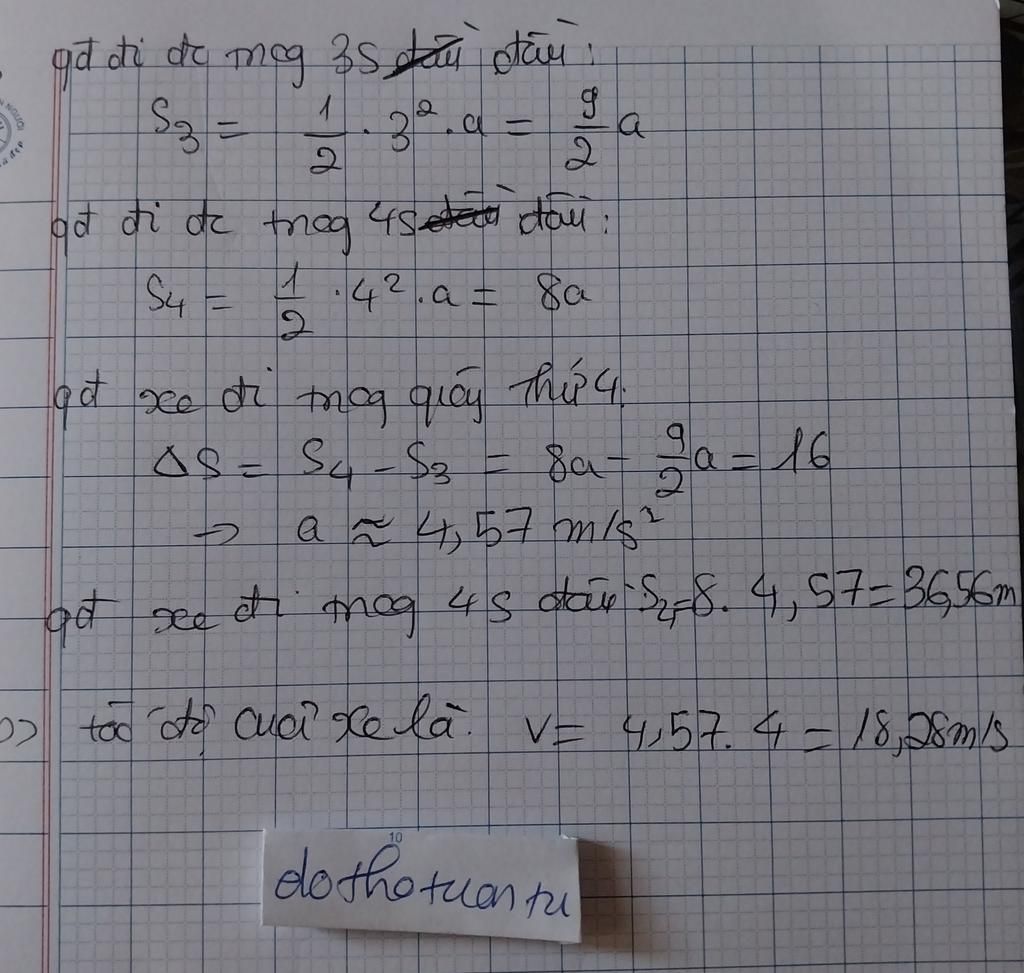 qđ đi đc trog 3s đầu:
S₃ = 1/2 . 3² . a = 9/2 a
qđ đi đc trog 4s đầu:
S₄ = 1/2 . 4² . a = 8a
qđ xe đi trog giây thứ 4.
ΔS = S₄ - S₃ = 8a - 9/2 a = 16
→ a ≈ 4,57 m/s²
qđ xe đi trog 4s đầu: S₄=8. 4,57=36,56m
=> tốc độ cuối xe là. v= 4,57. 4 = 18,28m/s
10
dothotuantu